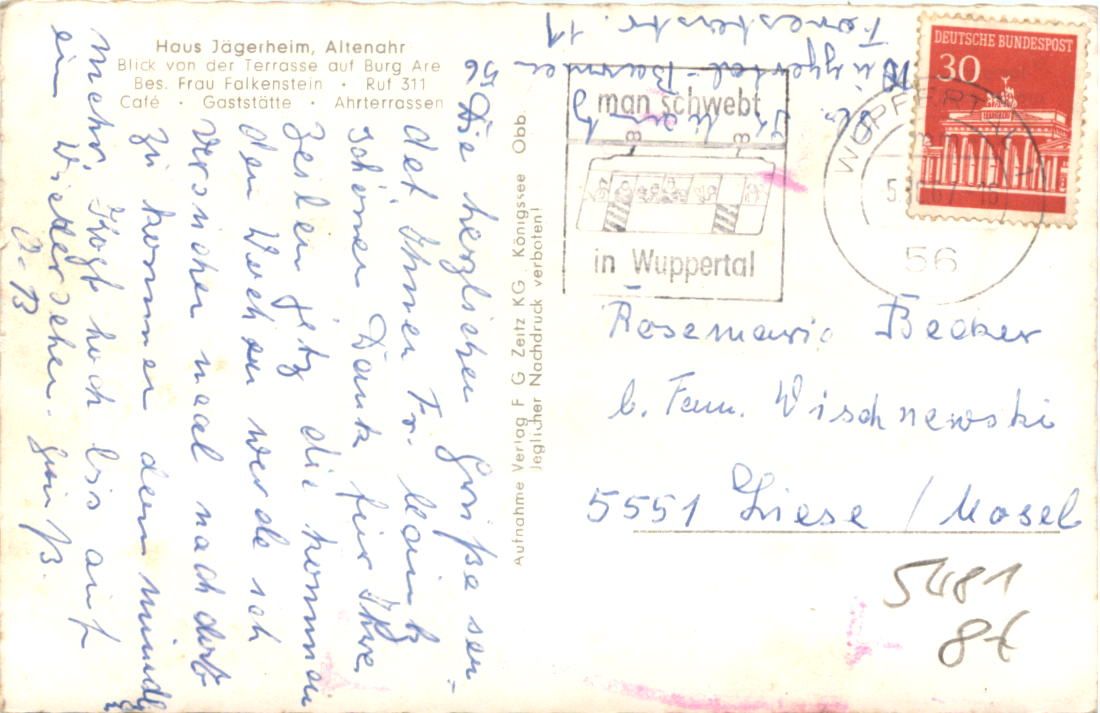 Haus Jägerheim, Altenahr
Blick von der Terrasse auf Burg Are
Bes. Frau Falkenstein · Ruf 311
Café · Gaststätte · Ahrterrassen
56 Die herzlichen Grüße sen-
det Ihnen Fr.
schönen Dank für Ihre
Zeilen jetz die kommen
den Wochen werde ich
versuchen meal nach dort
zu kommen dem mündl
mehr, Kopf hoch bis auf
ein Wiedersehen. Gruß
Aufnahme Verlag F G Zeitz KG. Königssee Obb.
Jeglicher Nachdruck verboten!
Wuppertal-Barmen
str. 11
man schwebt
in Wuppertal
WUPPERTAL
56
DEUTSCHE BUNDESPOST
30
Rosemarie Becker
b. Fam. Wischnewski
5551 Liese / Mosel
5481
8€